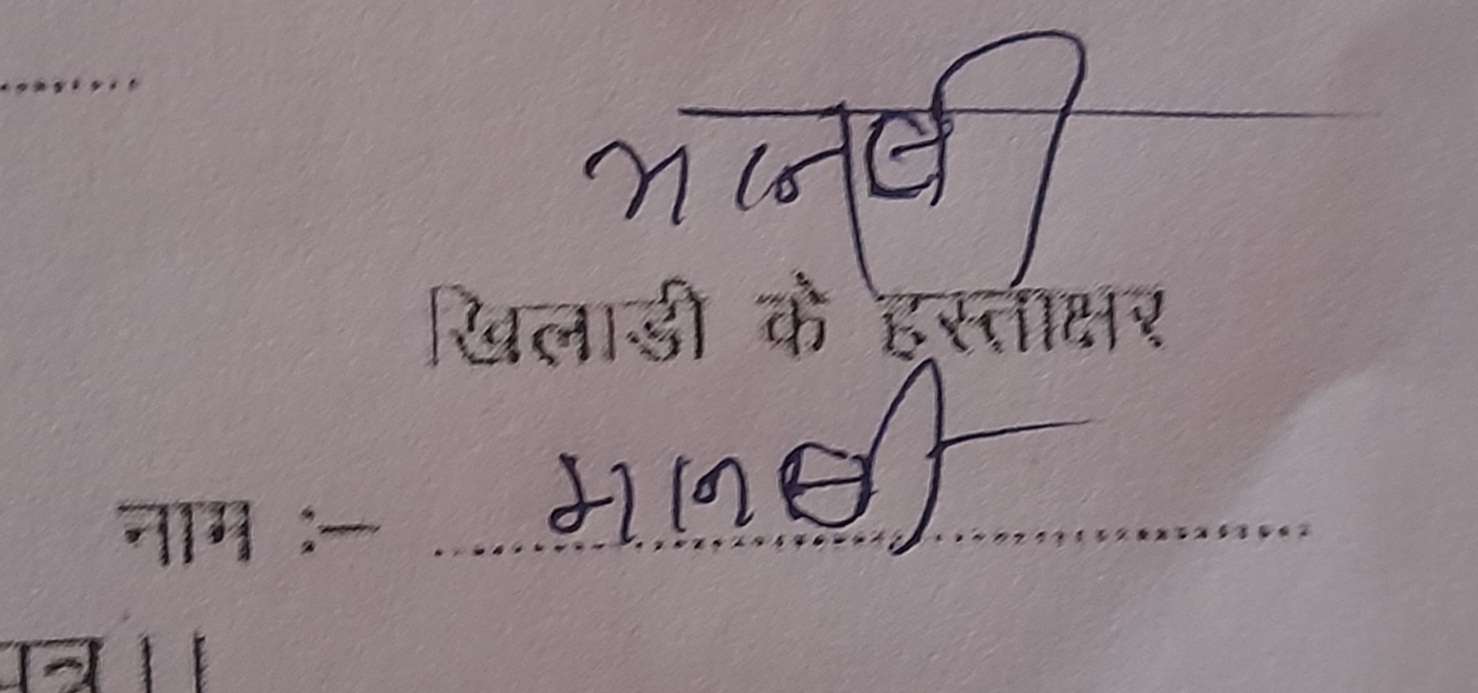 मानषी
खिलाडी के हस्ताक्षर
नाम :- मानषी
पत्र ||